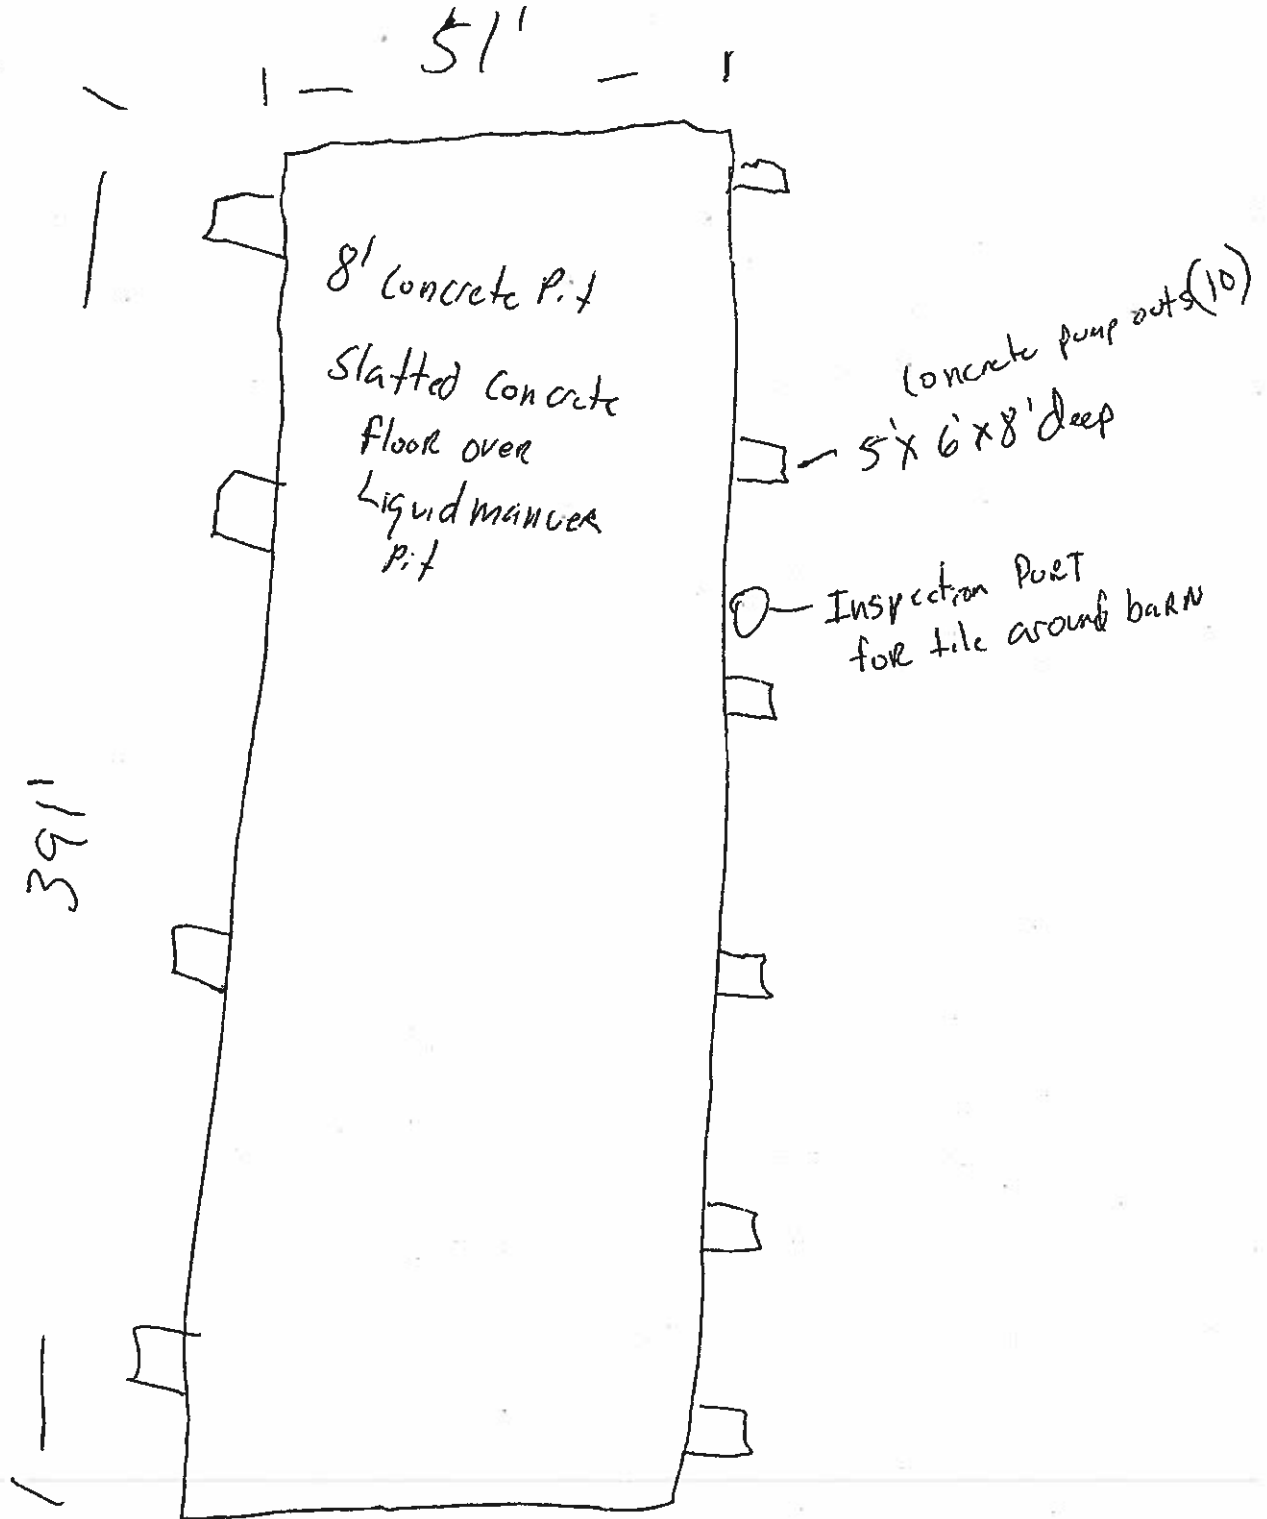 51'
8' Concrete Pit
Slatted Concrete
floor over
Liquid manuer
pit
Concrete pump outs (10)
5' x 6' x 8' deep
Inspection Port
for tile around barn
391'